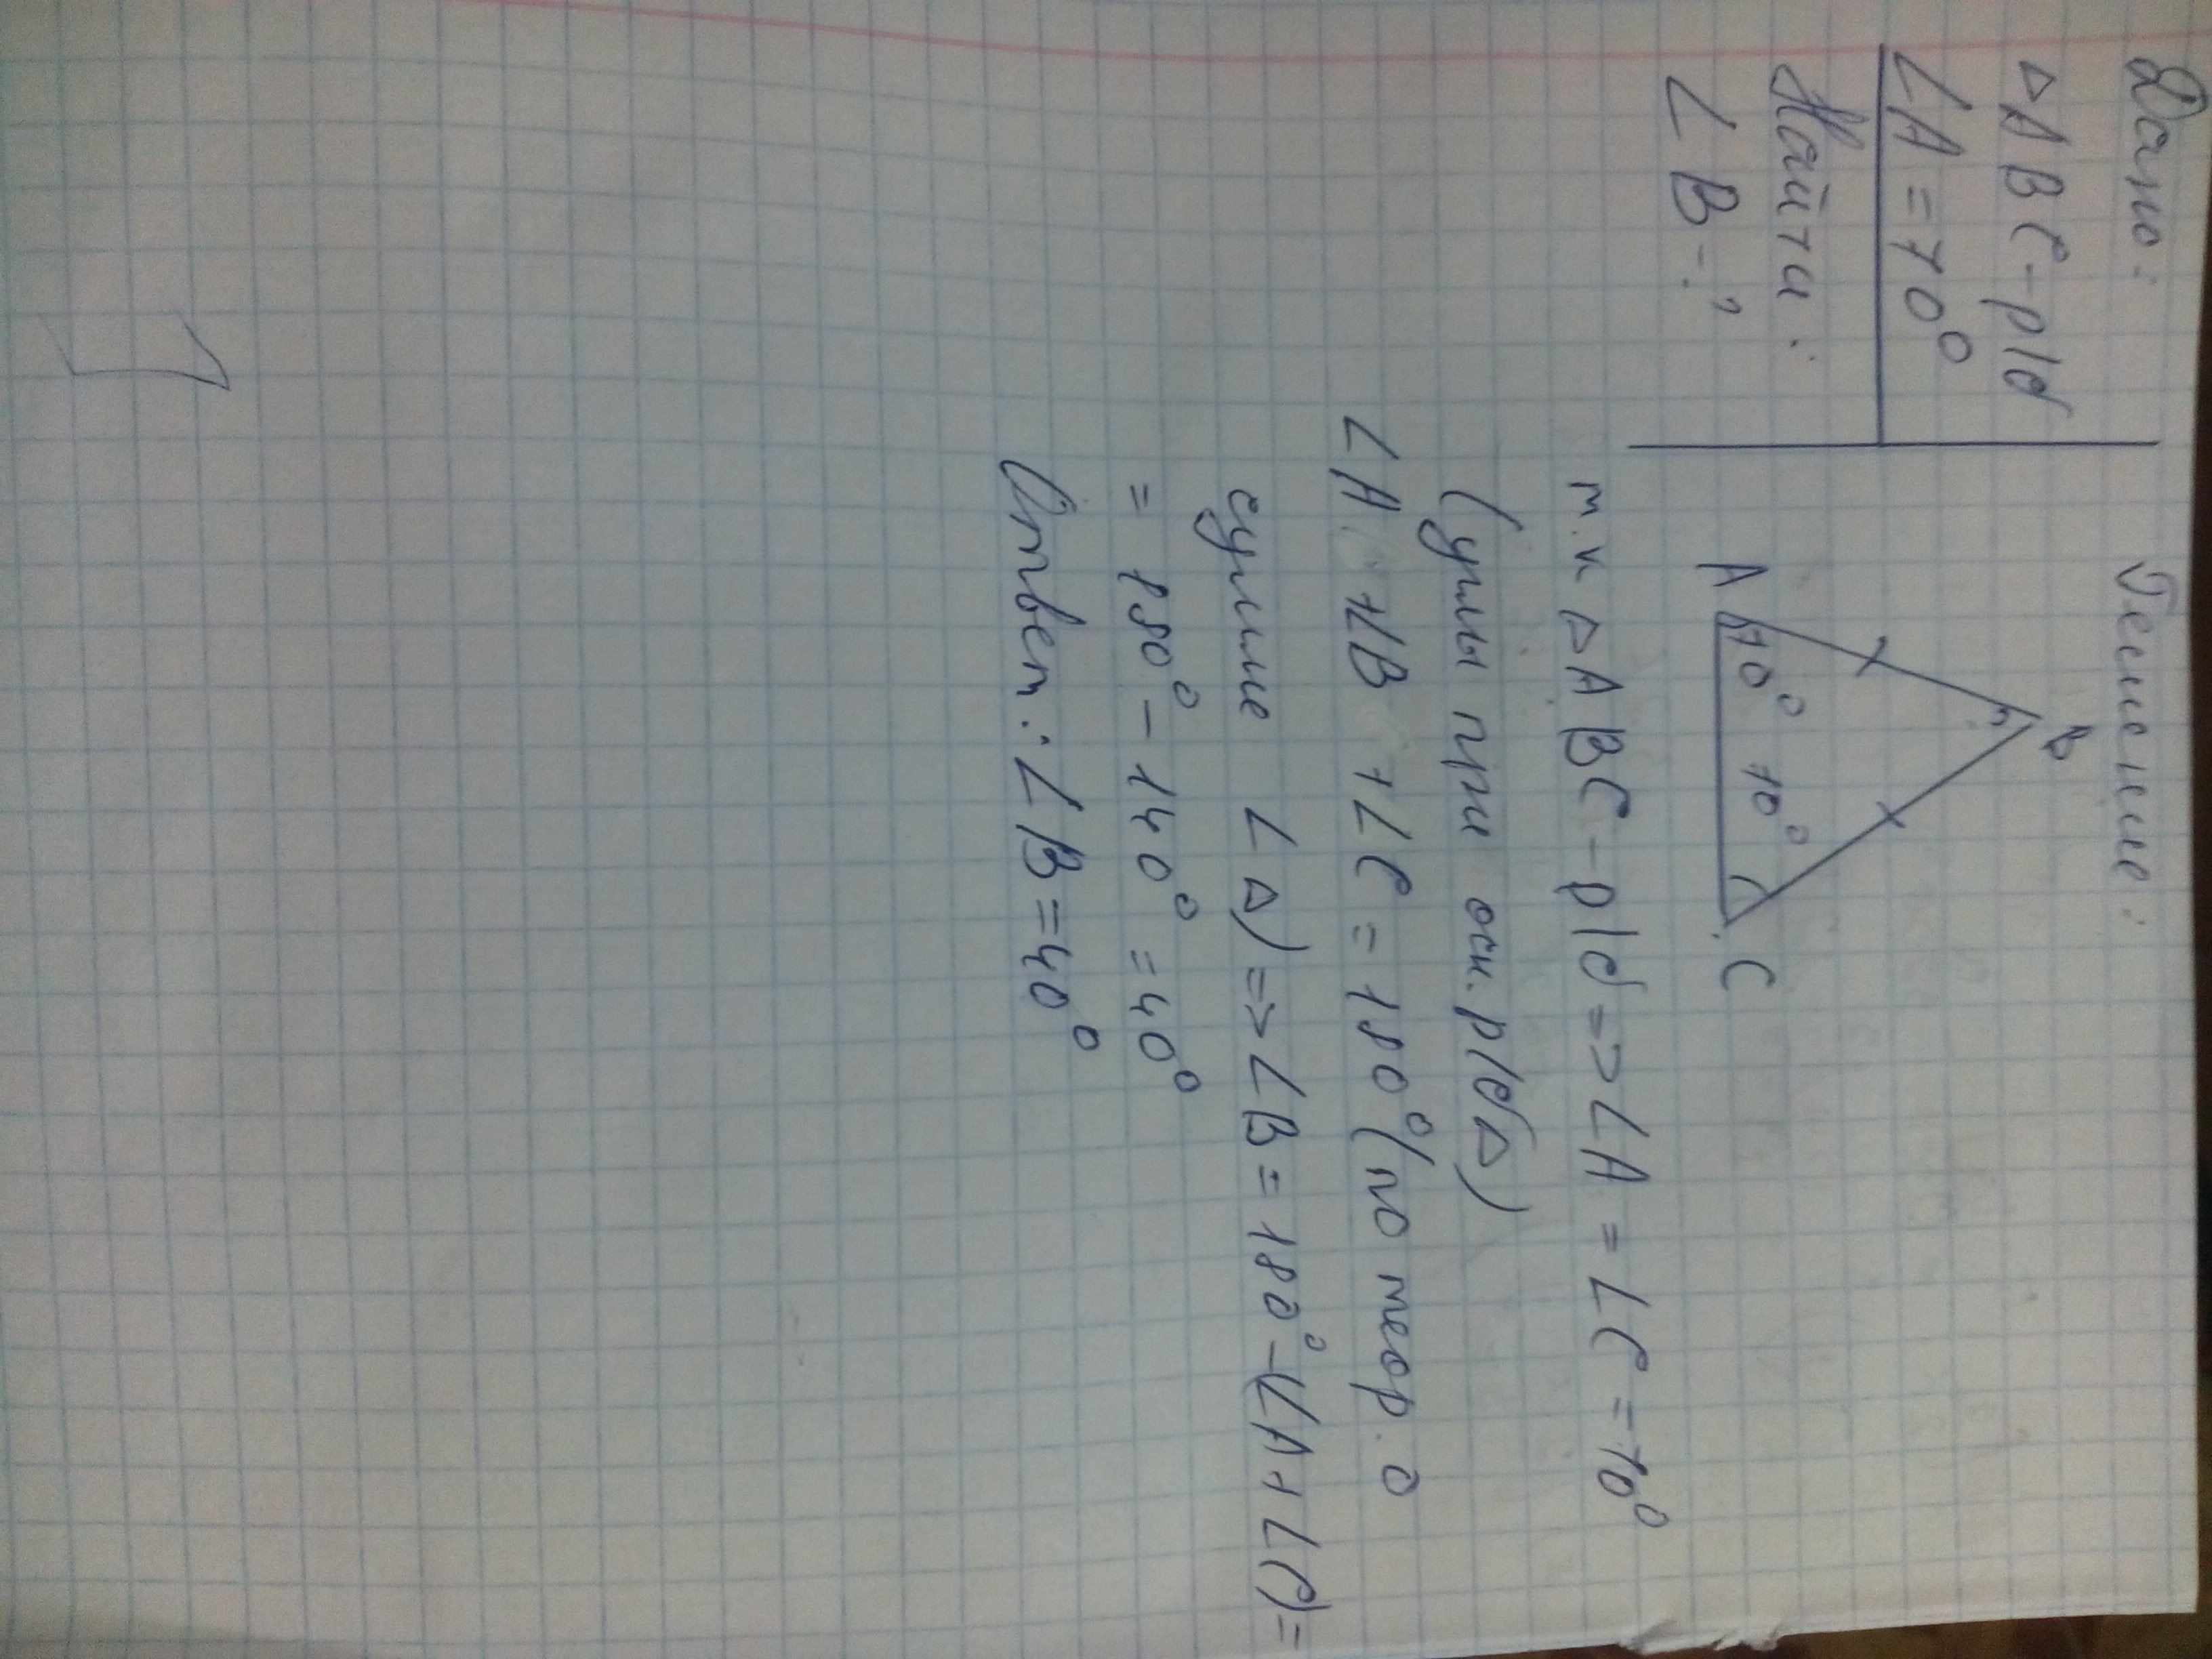 Дано:
△ABC-р/б
∠A=70°
Найти:
∠B-?
Решение:
B
A
70°
70°
C
т.к △ABC-р/б=>∠A=∠C=70°
(углы при осн. р/б△)
∠A+∠B+∠C=180°(по теор. о
сумме ∠△)=>∠B=180°-(∠A+∠C)=
=180°-140°=40°
Ответ:∠B=40°